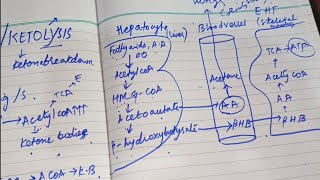 KETOLYSIS
ketone breakdown
E
TCA
Acetyl CoA↑↑↑
ketone bodies
ACOA → K.B
Hepatocyte (Liver)
Fatty acids, A.A
Acetyl CoA
HMG-COA
Acetoacetate
β-hydroxybutyrate
Blood vessel
Acetone
AA
BHB
EHT
(Skeletal
TCA → ATP
Acetyl COA
AA
BHB